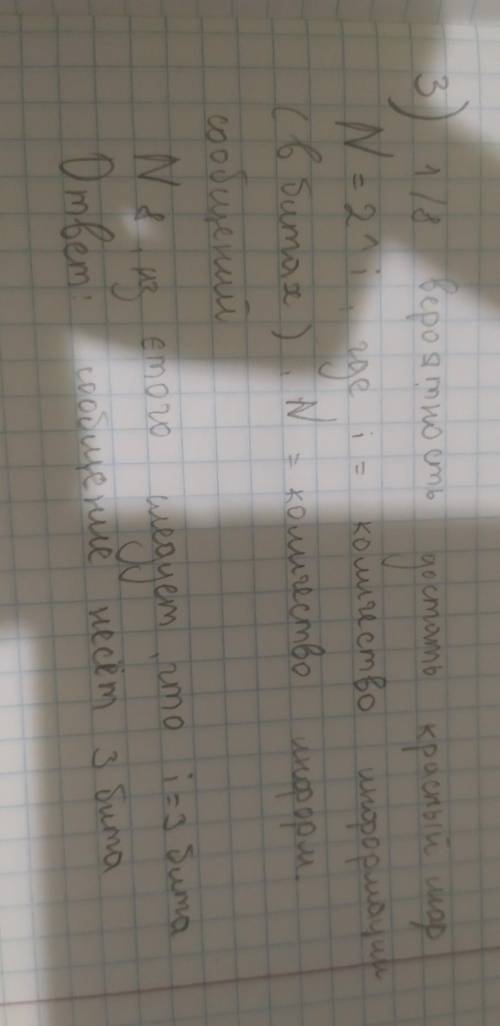 3) 1/8 вероятность достать красный шар
N = 2^i, где i = количество информации
(в битах), N = количество информ.
сообщений
N 8, из етого следует, что i=3 бита
Ответ: сообщение несёт 3 бита